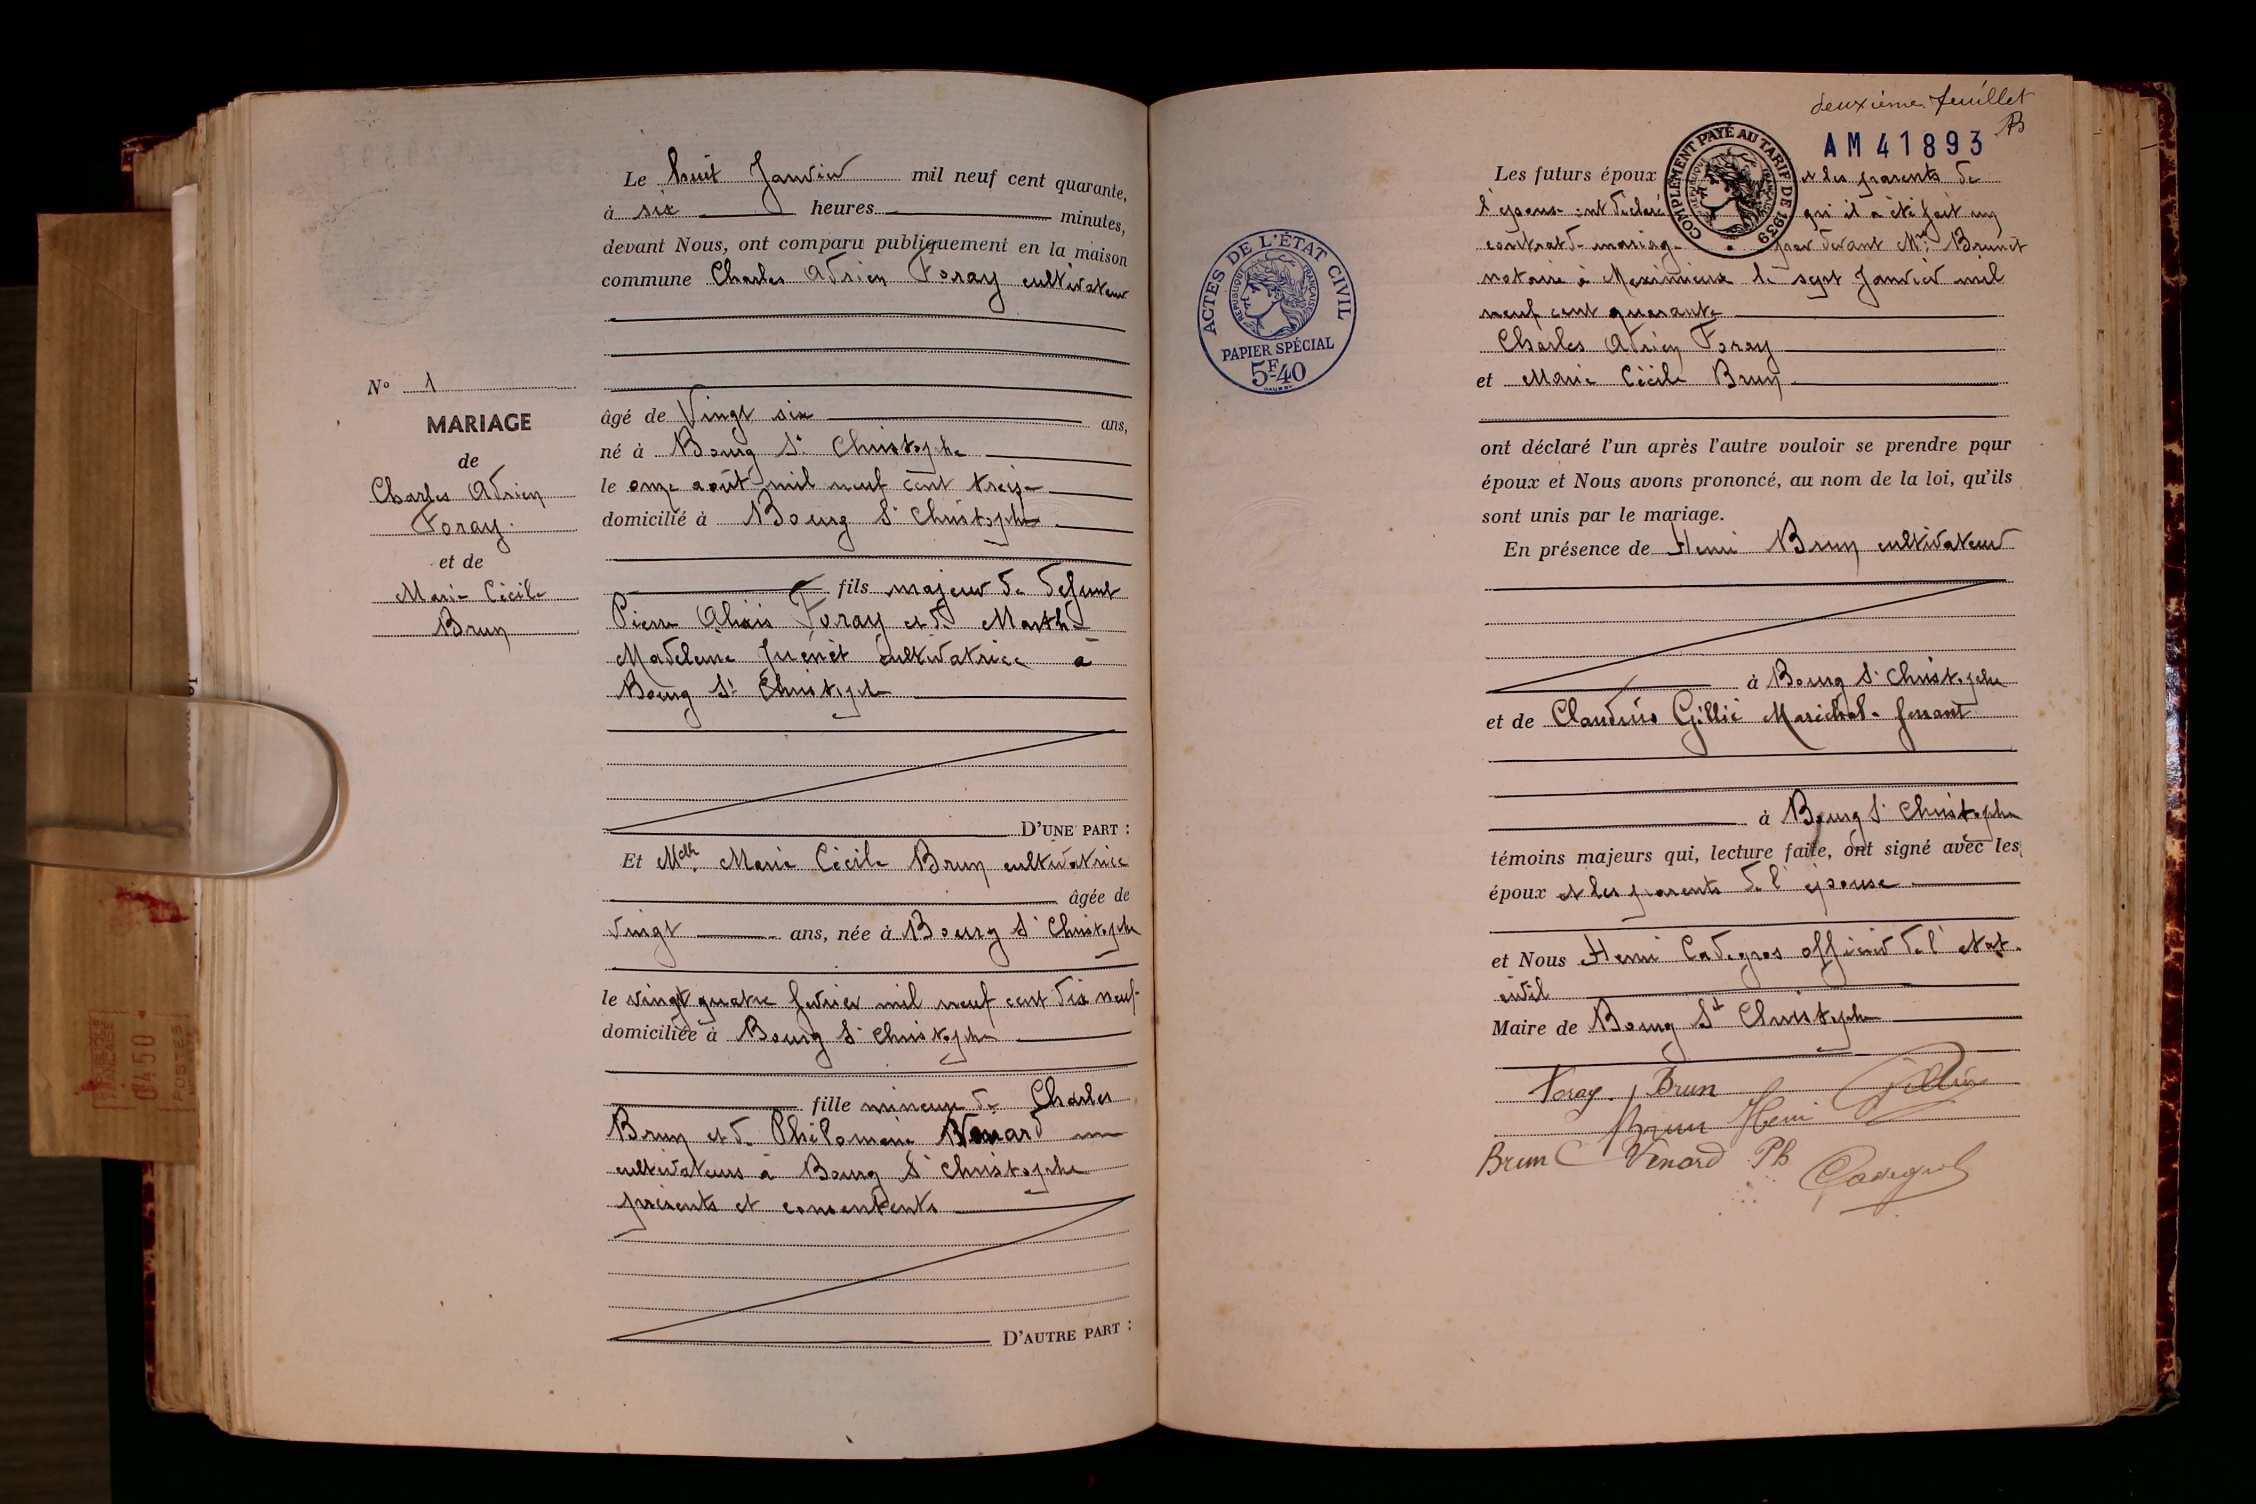 N° 1
MARIAGE
de
Charles Adrien
Foray
et de
Marie Cécile
Brun
Le huit Janvier mil neuf cent quarante,
à six heures minutes,
devant Nous, ont comparu publiquement en la maison
commune Charles Adrien Foray cultivateur
âgé de Vingt six ans,
né à Bourg St Christophe
le onze août mil neuf cent treize
domicilié à Bourg St Christophe
fils majeur de defunt
Pierre Alixis Foray et de Marthe
Madeleine Juenet cultivatrice à
Bourg St Christophe
D'UNE PART :
Et Melle Marie Cécile Brun cultivatrice
âgée de
vingt ans, née à Bourg St Christophe
le vingt quatre fevrier mil neuf cent dix neuf
domiciliée à Bourg St Christophe
fille mineure de Charles
Brun et de Philomène Venard
cultivateurs à Bourg St Christophe
présents et consentents
D'AUTRE PART :
ACTES DE L'ÉTAT CIVIL
RÉPUBLIQUE FRANÇAISE
PAPIER SPÉCIAL
5F40
deuxième feuillet
AM 41893
COMPLÉMENT PAYÉ AU TARIF DE 1939
RÉPUBLIQUE FRANÇAISE
Les futurs époux et les parents de
l'épouse ont déclaré qu'il a été fait un
contrat de mariage par devant Me Brunet
notaire à Meximieux le sept Janvier mil
neuf cent quarante
Charles Adrien Foray
et Marie Cécile Brun
ont déclaré l'un après l'autre vouloir se prendre pour
époux et Nous avons prononcé, au nom de la loi, qu'ils
sont unis par le mariage.
En présence de Henri Brun cultivateur
à Bourg St Christophe
et de Claudius Gillié Maréchal-ferrant
à Bourg St Christophe
témoins majeurs qui, lecture faite, ont signé avec les
époux et les parents de l'épouse
et Nous Henri Cadegros officier de l'etat-
civil
Maire de Bourg St Christophe
Foray Brun Gillié
Brun Henri
Brun C Venard Ph Cadegros